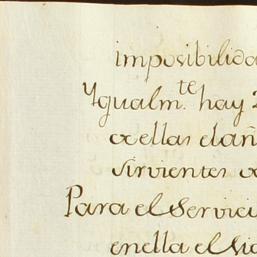 imposibilida
Ygualm.te hay 2
de ellas el añ
sirvientes de
Para el Servici
en ella el Vi